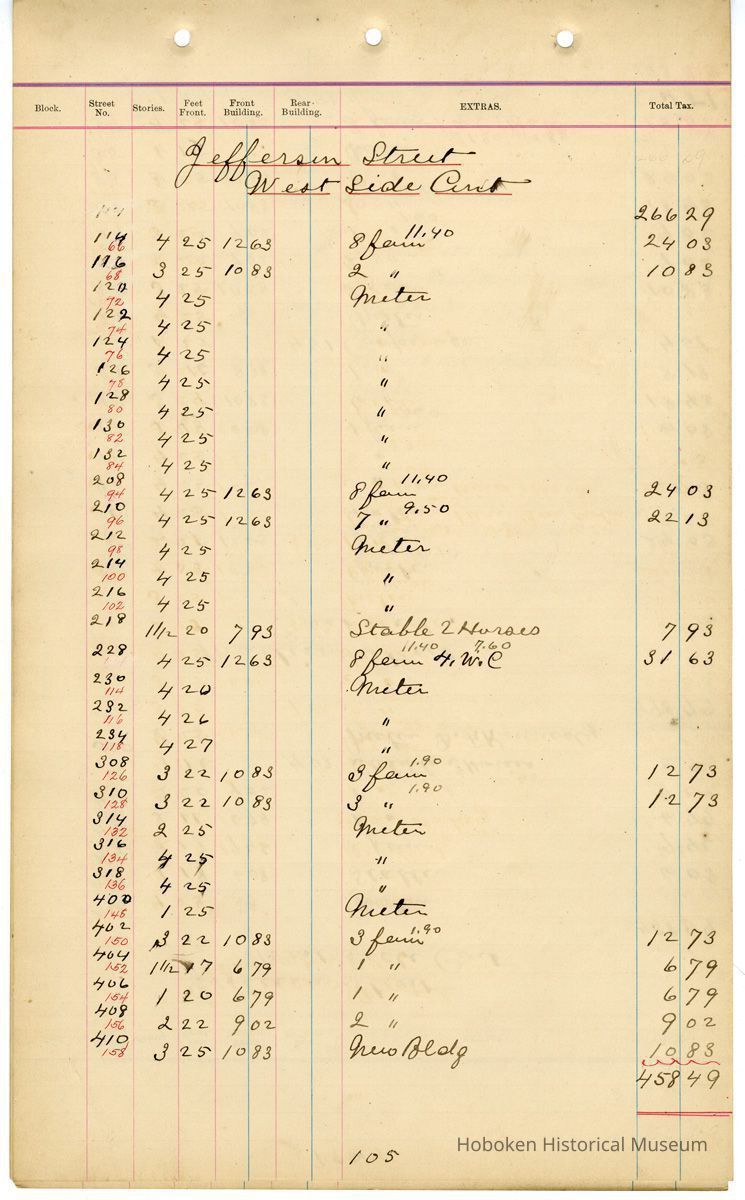 Block. Street No. Stories. Feet Front. Front Building. Rear Building. EXTRAS. Total Tax.
Jefferson Street
West Side Cont
266 29
114 66 4 25 12 63 8 fam 11.40 24 03
116 68 3 25 10 83 2 " 10 83
120 72 4 25 Meter
122 74 4 25 "
124 76 4 25 "
126 78 4 25 "
128 80 4 25 "
130 82 4 25 "
132 84 4 25 "
208 94 4 25 12 63 8 fam 11.40 24 03
210 96 4 25 12 63 7 " 9.50 22 13
212 98 4 25 Meter
214 100 4 25 "
216 102 4 25 "
218 1 1/2 20 7 93 Stable 2 Horses 7 93
228 4 25 12 63 8 fam 11.40 4. W.C 7.60 31 63
230 114 4 20 Meter
232 116 4 26 "
234 118 4 27 "
308 126 3 22 10 83 3 fam 1.90 12 73
310 128 3 22 10 83 3 " 1.90 12 73
314 132 2 25 Meter
316 134 4 25 "
318 136 4 25 "
400 148 1 25 Meter
402 150 3 22 10 83 3 fam 1.90 12 73
404 152 1 1/2 17 6 79 1 " 6 79
406 154 1 20 6 79 1 " 6 79
408 156 2 22 9 02 2 " 9 02
410 158 3 25 10 83 New Bldg 10 83
458 49
105
Hoboken Historical Museum